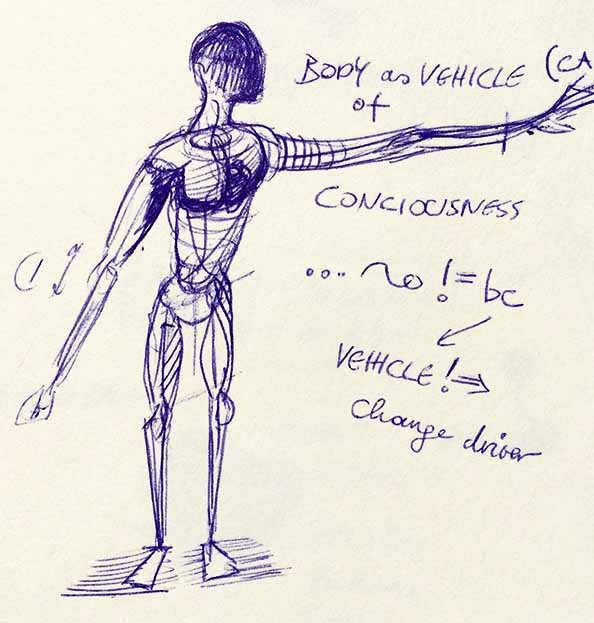 BODY as VEHICLE (CA
of
CONCIOUSNESS
... no != bc
VEHICLE !⇒
change driver